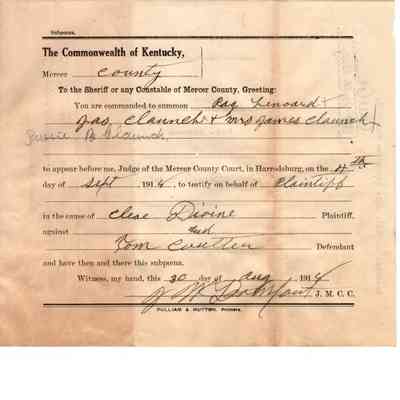 Subpoena.
The Commonwealth of Kentucky,
Mercer County
To the Sheriff or any Constable of Mercer County, Greeting:
You are commanded to summon Ray Lenoard &
Jas, Claunch & Mrs James Claunch
Jessie B Claunch
to appear before me, Judge of the Mercer County Court, in Harrodsburg, on the 4th
day of Sept 1914, to testify on behalf of Plaintiff
in the cause of Cleae Divine Plaintiff,
against
Tom Defendant
and have then and there this subpoena.
Witness, my hand, this 30 day of Aug 1914
J. M. C. C.
PULLIAM & NUTTER, Printers.